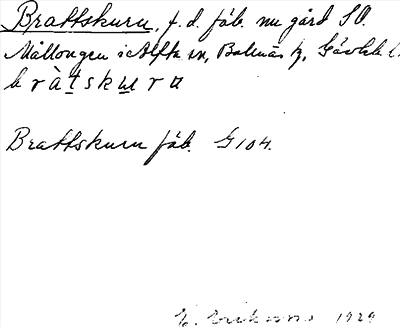 Brattskuru, f. d. fäb. nu gård SO.
Mållången i Alfta sn, Bollnäs kr., Gävleb. l.
bràtskuru
Brattskuru fäb. G 104.
E. Eriksson 1929